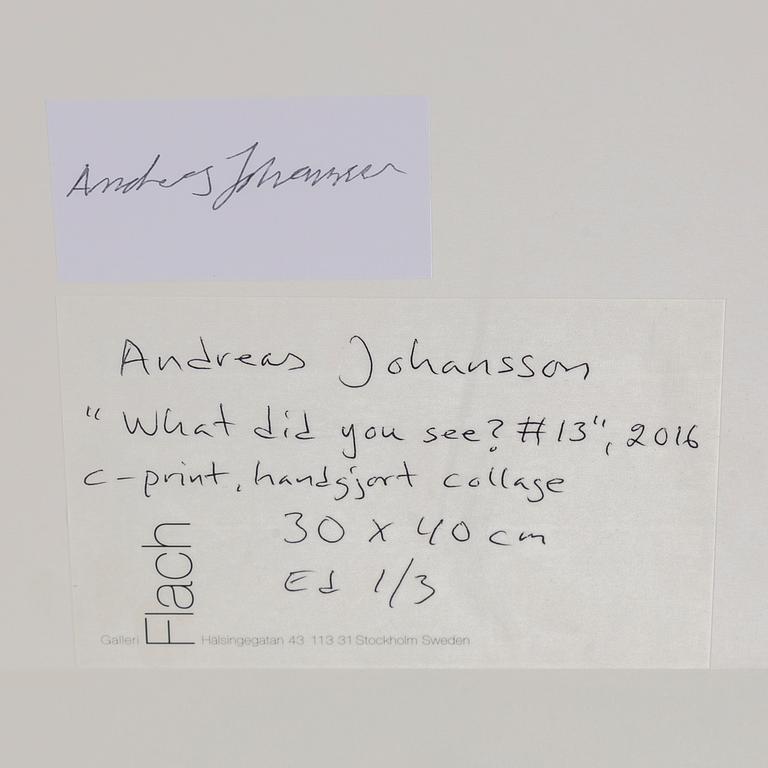 Andreas Johansson
Andreas Johansson
"What did you see? #13", 2016
c-print, handgjort collage
30 x 40 cm
Ed 1/3
Galleri Flach Hälsingegatan 43 113 31 Stockholm Sweden